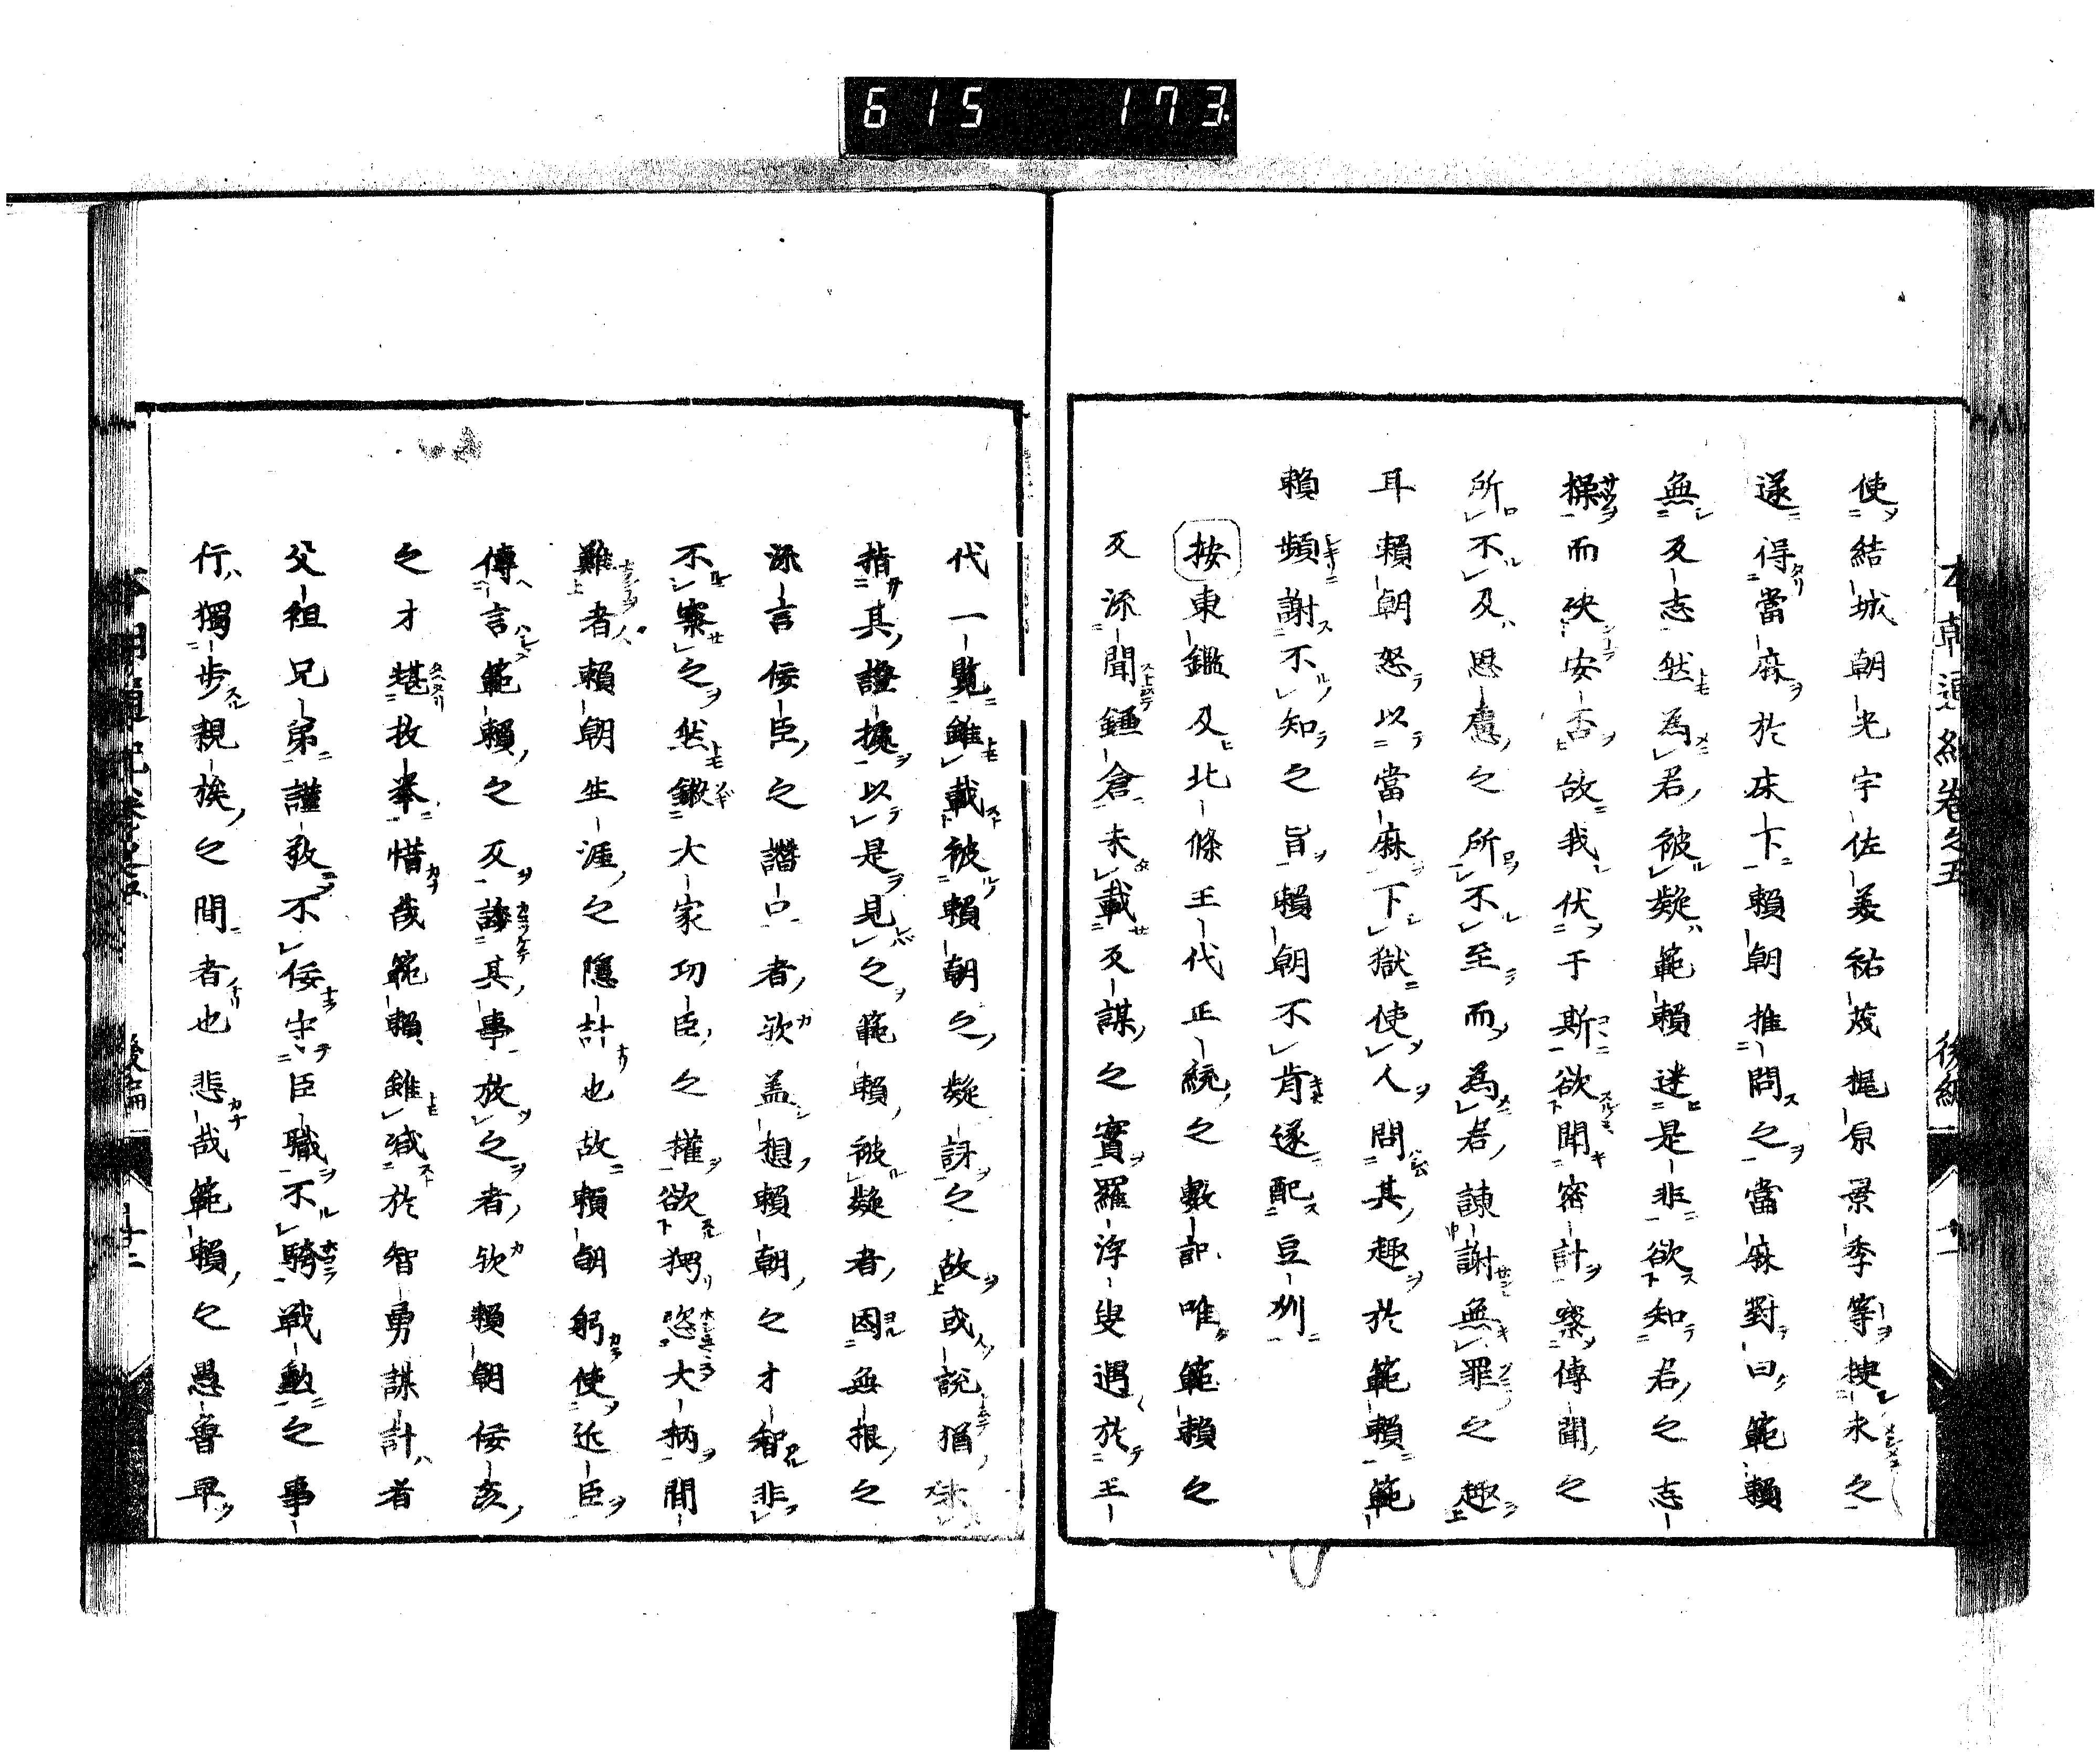 615 173
本朝通紀卷之五 後編
使結城朝光宇佐美祐茂梶原景季等捜求之
遂得當麻於床下賴朝推問之當麻對曰範賴
無反志然為君被疑範賴迷是非欲知君之志
操而決安否故我伏于斯欲聞密計察傳聞之
所不及思慮之所不至而為君諫謝無罪之趣
耳賴朝怒以當麻下獄使人問其趣於範賴範
賴頻謝不知之旨賴朝不肯遂配豆州
按東鑑及北條王代正統之數記唯範賴之
反流聞鎌倉未載反謀之實羅浮叟遇於王
代一覽雖載被賴朝之疑訝之故或說猶未
指其證據以是見之範賴被疑者因無根之
流言佞臣之讒口者欤盖想賴朝之才智非
不察之然鍛大家功臣之權欲獨恣大柄間
難者賴朝生涯之隱計也故賴朝躬使近臣
傳言範賴之反誇其事放之者欤賴朝佞亥
之才堪救牽惜哉範賴雖減於智勇謀計者
父祖兄弟謹敬不佞守臣職不驕戰勲之事
行獨步親族之間者也悲哉範賴之愚魯早
後編 十二